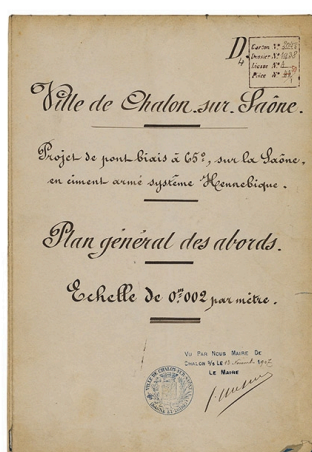 D.
4
Carton N°
Dossier N°
Liasse N°
Pièce N°
Ville de Chalon-sur-Saône.
Projet de pont biais à 65°, sur la Saône,
en ciment armé système Hennebique.
Plan général des abords.
Echelle de 0,m002 par mètre.
VU PAR NOUS MAIRE DE
CHALON S/S LE
LE MAIRE
VILLE DE CHALON-SUR-SAÔNE